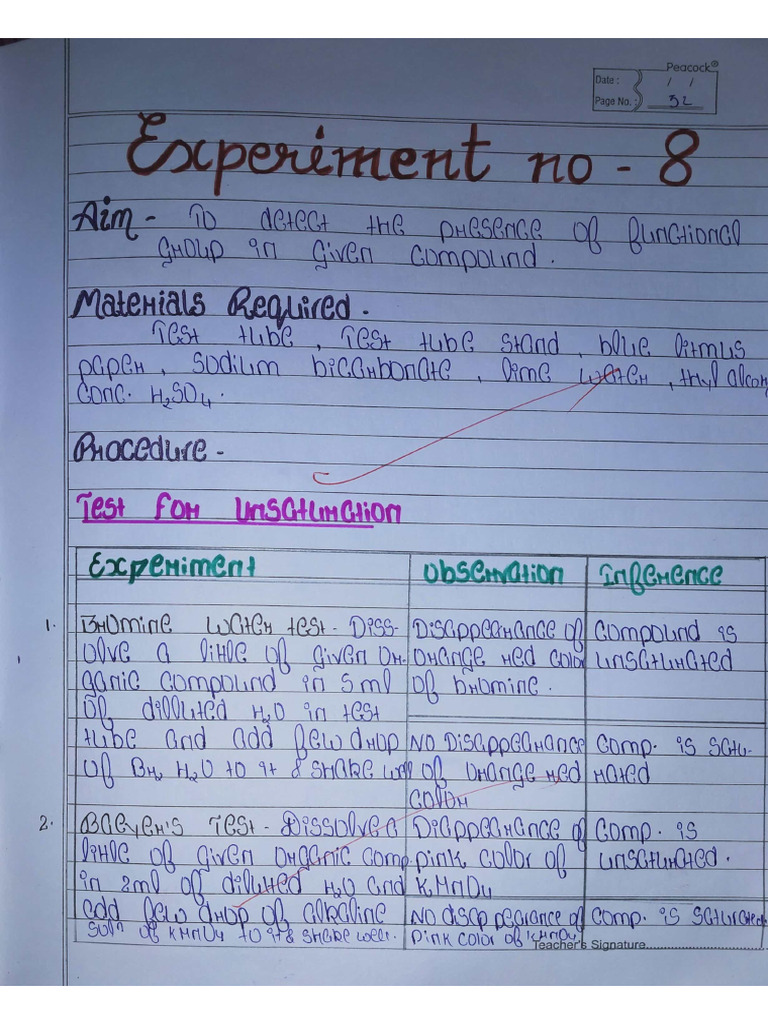 Peacock®
Date : / /
Page No. : 32
Experiment no - 8
Aim - To detect the presence of functional
group in given compound.
Materials Required.
Test tube, Test tube stand, blue litmus
paper, sodium bicarbonate, lime water, thyl alcohol
conc. H₂SO₄.
Procedure -
Test for Unsaturation
Experiment Observation Inference
1. Bromine water test - Diss-
olve a little of given or-
ganic compound in 5 ml
of dilluted H₂O in test
tube and add few drop
of Br₂ H₂O to it & shake well
Disappearance of
orange red color
of bromine.
Compound is
unsaturated
No Disappearance
of orange red
color
Comp. is satu-
rated
2. Baeyer's Test - Dissolve a
little of given organic comp.
in 2ml of diluted H₂O and
add few drop of alkaline
soln of KMnO₄ to it & shake well.
Diappearance of
pink color of
KMnO₄
Comp. is
unsaturated.
No disappearance of
pink color of KMnO₄
Comp. is saturated
Teacher's Signature